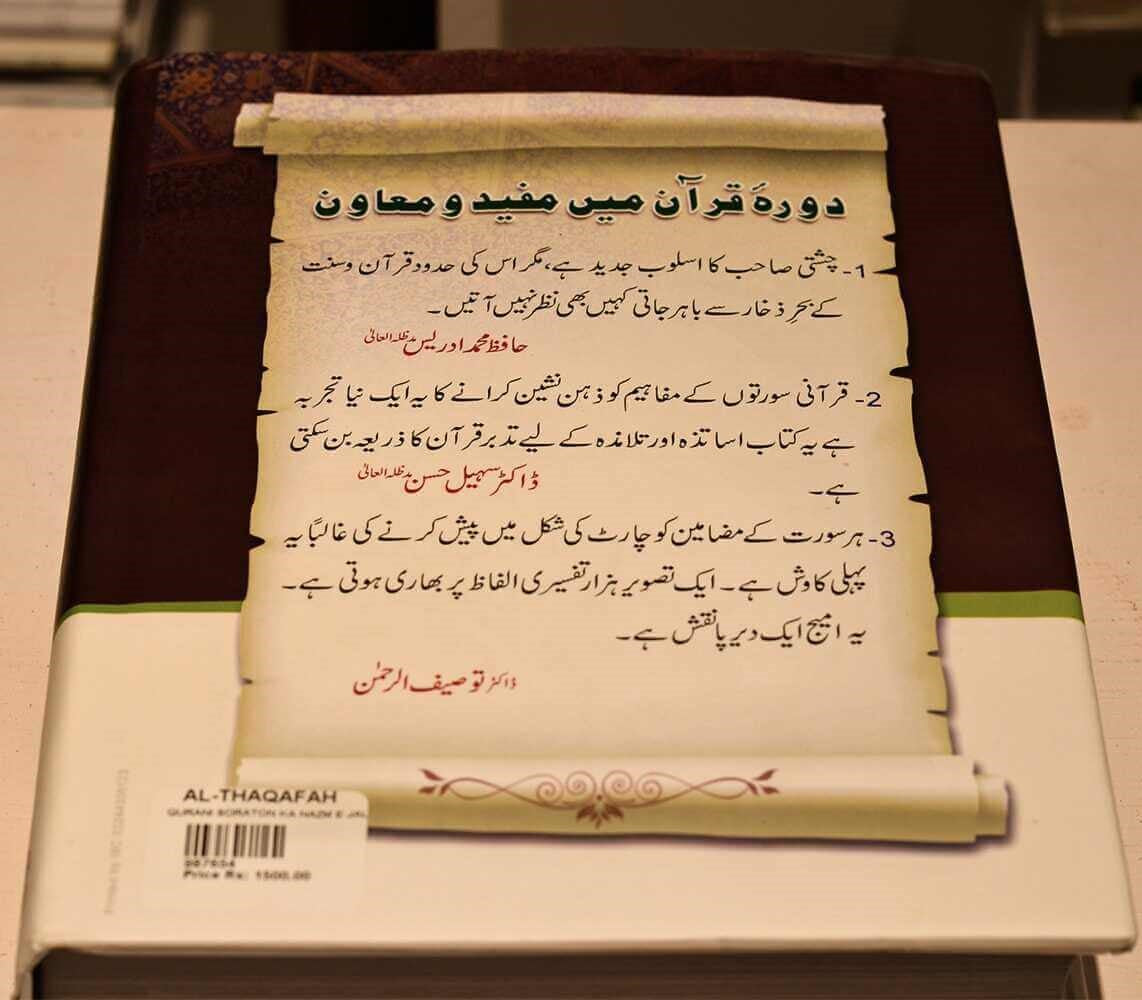 دورۂ قرآن میں مفید و معاون
1- چشتی صاحب کا اسلوب جدید ہے، مگر اس کی حدود قرآن وسنت
کے بحرِ ذخار سے باہر جاتی کہیں بھی نظر نہیں آتیں۔
حافظ محمد ادریس مدظلہ العالیٰ
2- قرآنی سورتوں کے مفاہیم کو ذہن نشین کرانے کا یہ ایک نیا تجربہ
ہے یہ کتاب اساتذہ اور تلامذہ کے لیے تدبر قرآن کا ذریعہ بن سکتی
ہے۔
ڈاکٹر سہیل حسن مدظلہ العالیٰ
3- ہر سورت کے مضامین کو چارٹ کی شکل میں پیش کرنے کی غالبًا یہ
پہلی کاوش ہے۔ ایک تصویر ہزار تفسیری الفاظ پر بھاری ہوتی ہے۔
یہ امیج ایک دیرپا نقش ہے۔
ڈاکٹر توصیف الرحمٰن
AL-THAQAFAH
QURANI SORATON KA NAZM E JAL
Price Rs: 1500.00